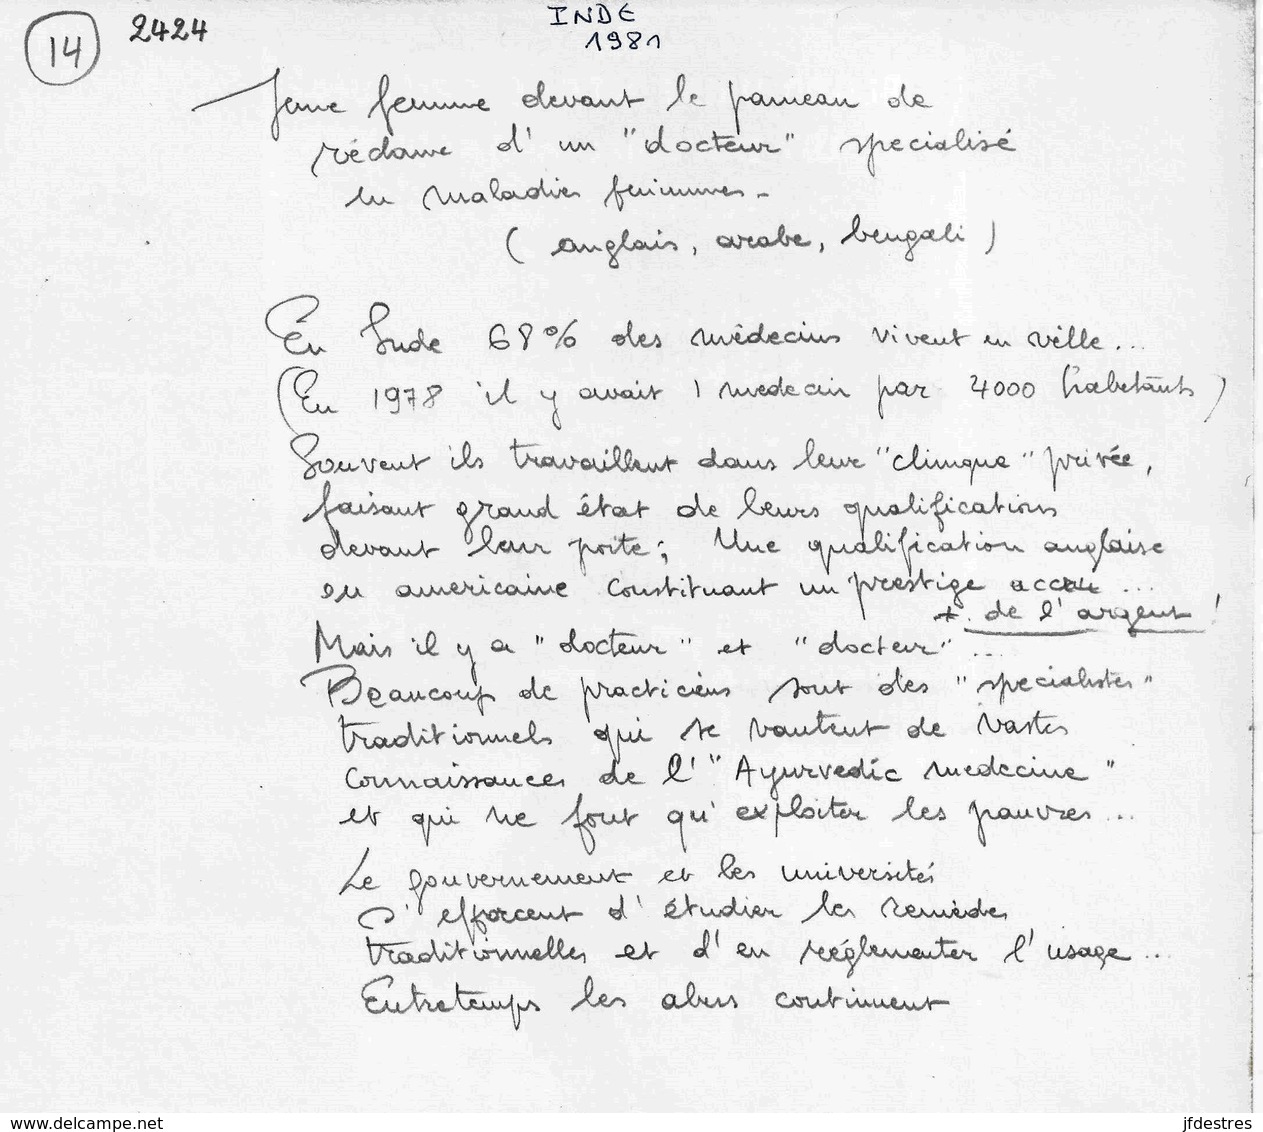 14 2424 INDE
1981
Jeune femme devant le panneau de
réclame d'un "docteur" specialisé
en maladies feminines -
( anglais, arabe, bengali )
En Inde 68% des mèdecins vivent en ville...
(En 1978 il y avait 1 medecin par 4000 habitants)
Souvent ils travaillent dans leur "clinique" privée,
faisant grand état de leurs qualifications
devant leur porte; Une qualification anglaise
ou americaine constituant un prestige accru ...
+ de l'argent !
Mais il y a "docteur" et "docteur" ...
Beaucoup de practiciens sont des "specialistes"
traditionnels qui se vantent de vastes
connaissances de l'"Ayurvedic medecine"
et qui ne font qu'exploiter les pauvres ...
Le gouvernement et les universités
s'efforcent d'étudier les remèdes
traditionnelles et d'en réglementer l'usage ...
Entretemps les abus continuent
www.delcampe.net jfdestres